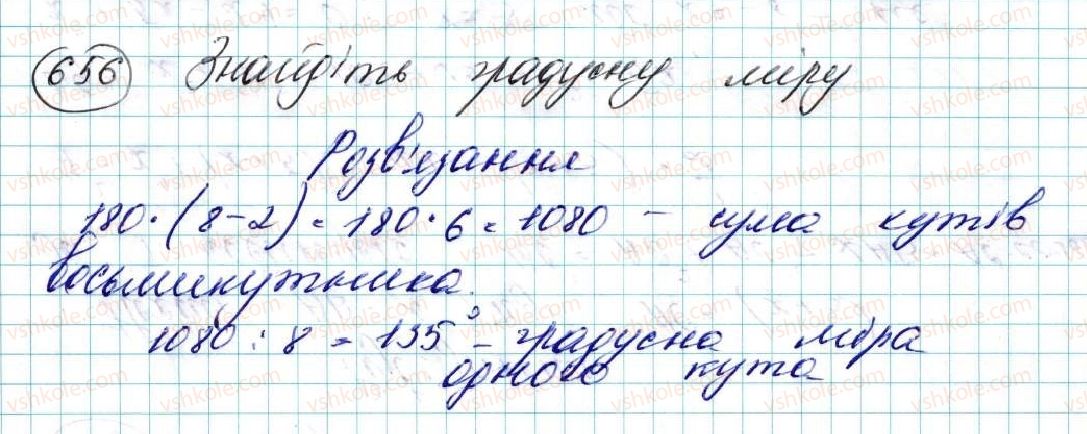 656 Знайдіть градусну міру
Розв'язання
180·(8-2) = 180·6 = 1080 - сума кутів
восьмикутника.
1080 : 8 = 135° - градусна міра
одного кута